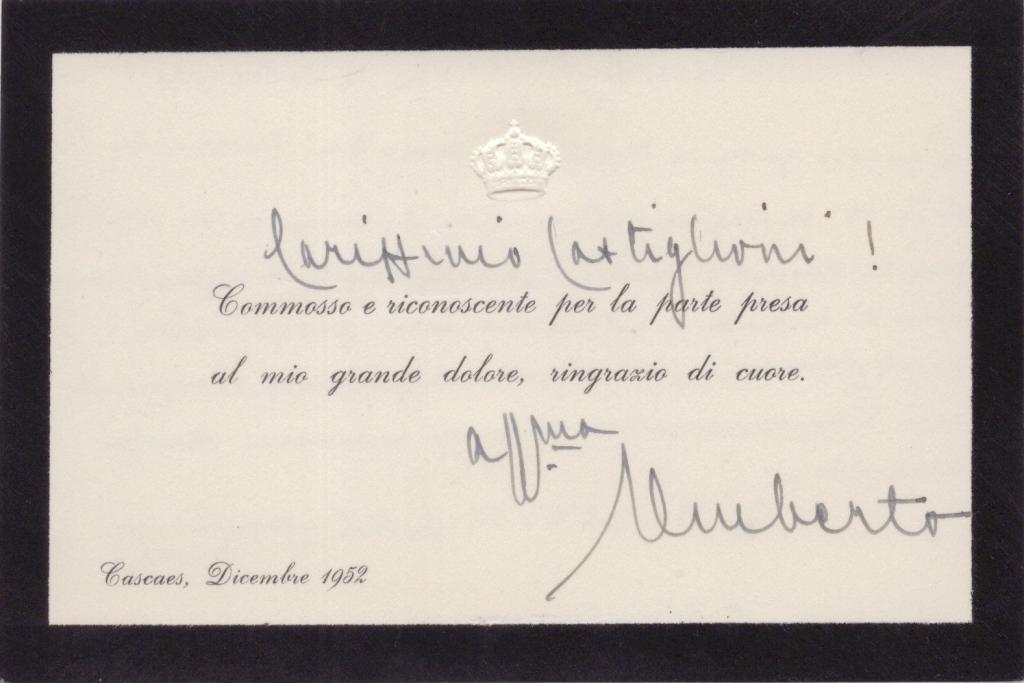 Carissimo Castiglioni !
Commosso e riconoscente per la parte presa
al mio grande dolore, ringrazio di cuore.
affmo
Umberto
Cascaes, Dicembre 1952